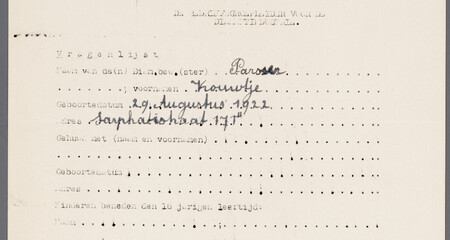 DE VOOR DE
V r a g e n l i j s t
Naam van de(n) Diam.bew.(ster) Parsser
; voornamen Vrouwtje
Geboortedatum 29 Augustus 1922
Adres Sarphatistraat 171"
Gehuwd met (naam en voornamen)
Geboortedatum
Adres
Kinderen beneden den 16 jarigen leeftijd:
Naam